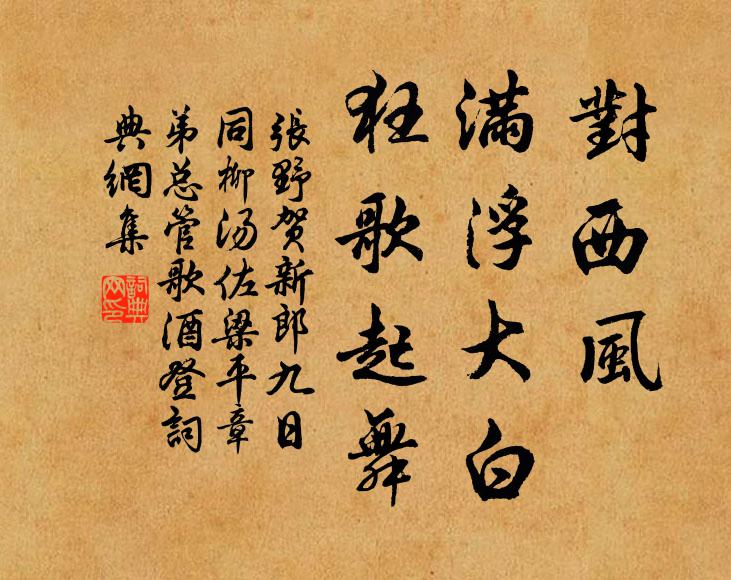 對西風
滿浮大白
狂歌起舞
張野贺新郎九日
同柳汤佐梁平章
弟总管歌酒登詞
典網集
詞典網印